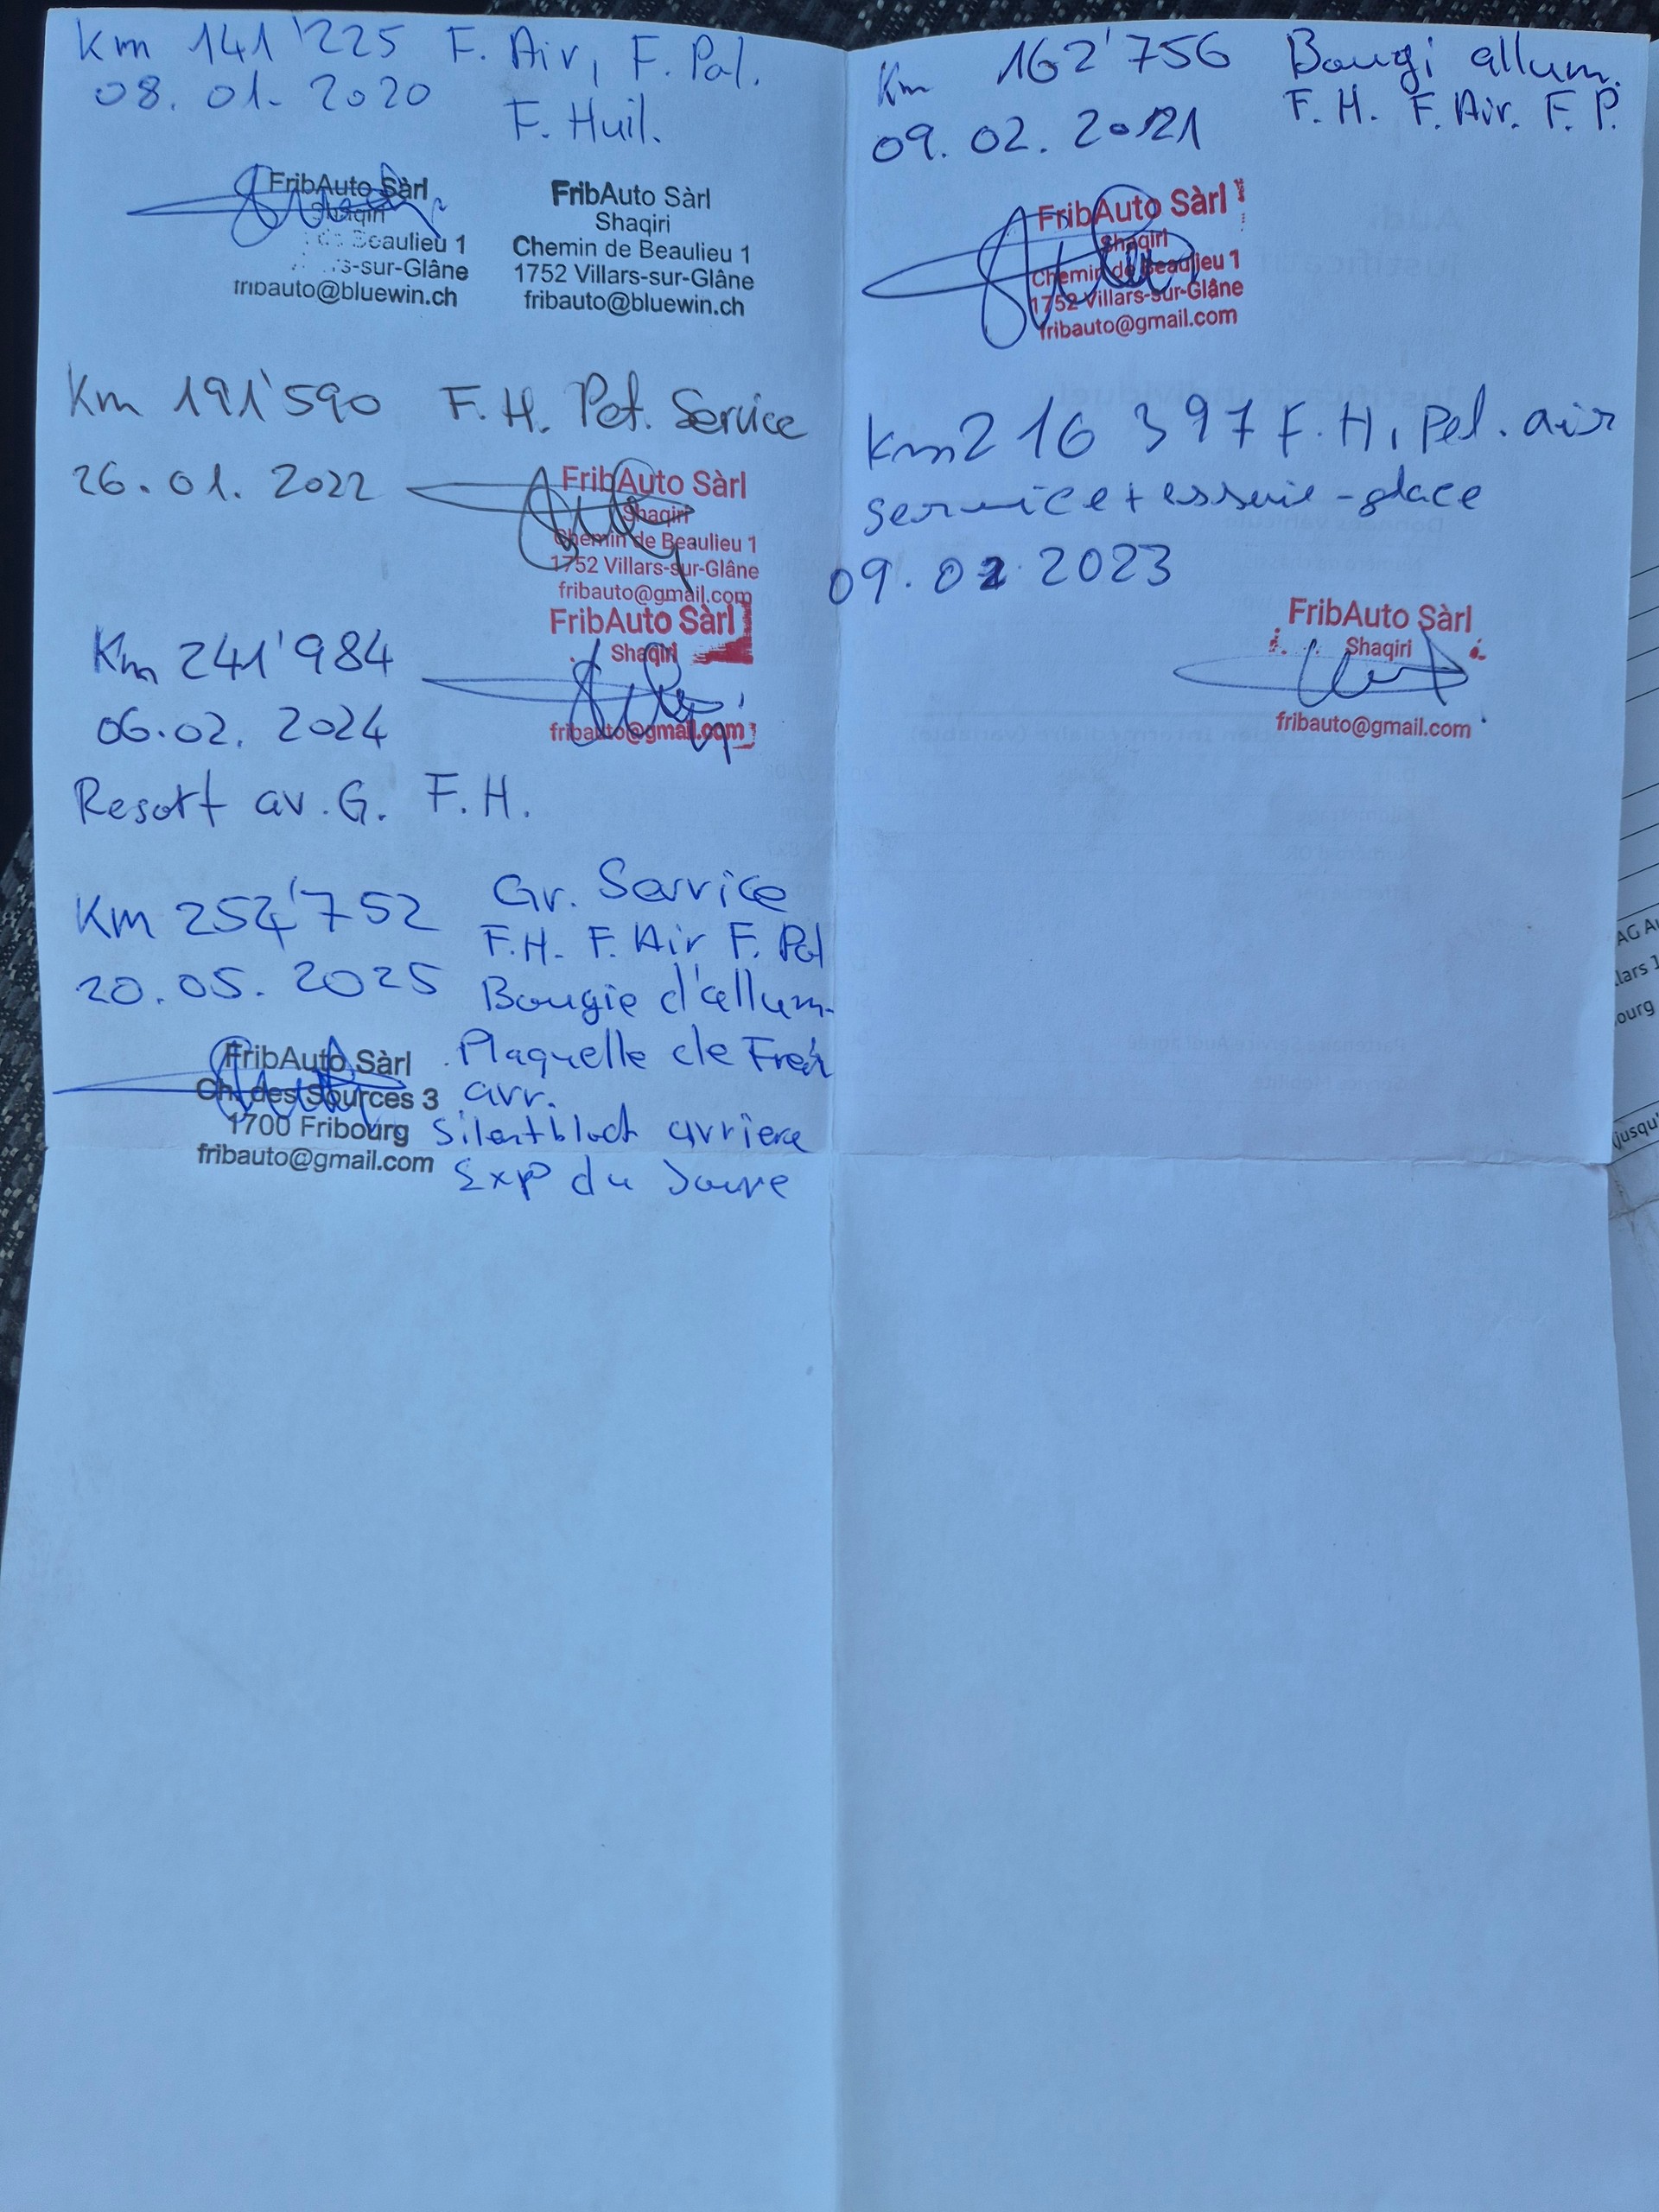 Km 141'225 F. Air, F. Pol.
08.01.2020 F. Huil.
FribAuto Sàrl
Shaqiri
de Beaulieu 1
s-sur-Glâne
fribauto@bluewin.ch
FribAuto Sàrl
Shaqiri
Chemin de Beaulieu 1
1752 Villars-sur-Glâne
fribauto@bluewin.ch
Km 162'756 Bougi allum.
F. H. F. Air. F. P.
09.02.2021
FribAuto Sàrl
Shaqiri
Chemin de Beaulieu 1
1752 Villars-sur-Glâne
fribauto@gmail.com
Km 191'590 F.H. Pet. Service
26.01.2022
FribAuto Sàrl
Shaqiri
Chemin de Beaulieu 1
1752 Villars-sur-Glâne
fribauto@gmail.com
Km 216 397 F.H, Pel. air
service + essuie-glace
09.02.2023
FribAuto Sàrl
Shaqiri
fribauto@gmail.com
Km 241'984
06.02.2024
FribAuto Sàrl
Shaqiri
fribauto@gmail.com
Resort av. G. F.H.
Km 254'752 Gr. Service
F.H. F. Air F. Pol
20.05.2025 Bougie d'allum.
Plaquelle de Frein
arr.
Silentbloct arriere
Exp du Joure
FribAuto Sàrl
Ch. des Sources 3
1700 Fribourg
fribauto@gmail.com